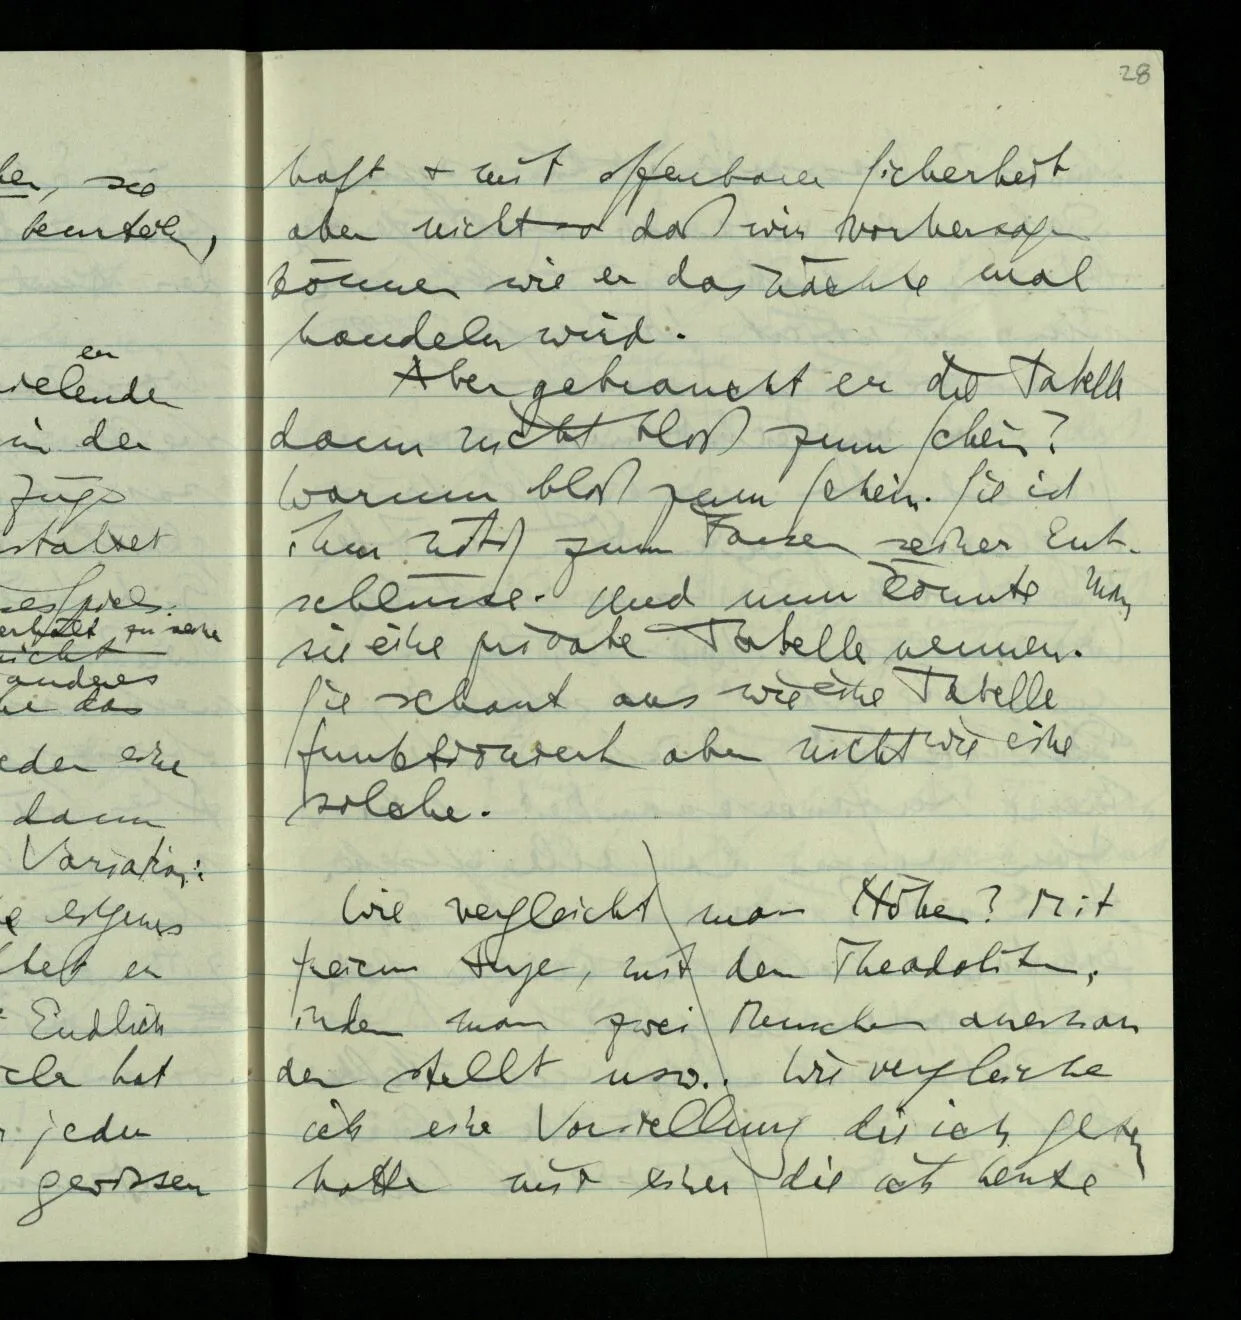 28
hen, sie
beurteilen,
er
spielenden
in der
Züge
staltet
es Spiels.
nicht
anderes
das
eder eine
dann
Variation:
eignes
er
Endlich
hat
jeder
gewissen
haft + mit offenbarer Sicherheit
aber nicht so daß wir vorhersagen
können wie er das nächste mal
handeln wird.
Aber gebraucht er die Tabelle
dann nicht bloß zum Schein?
Warum bloß zum Schein. Sie ist
ihm nötig zum Fassen seiner Ent-
schlüsse. Und nun könnte man
sie eine private Tabelle nennen.
Sie schaut aus wie eine Tabelle
funktioniert aber nicht wie eine
solche.
Wie vergleicht man Höhen? Mit
freiem Auge, mit dem Theodoliten,
indem man zwei Menschen aneinan
der stellt usw.. Wie vergleiche
ich eine Vorstellung die ich gestern
hatte mit einer die ich heute